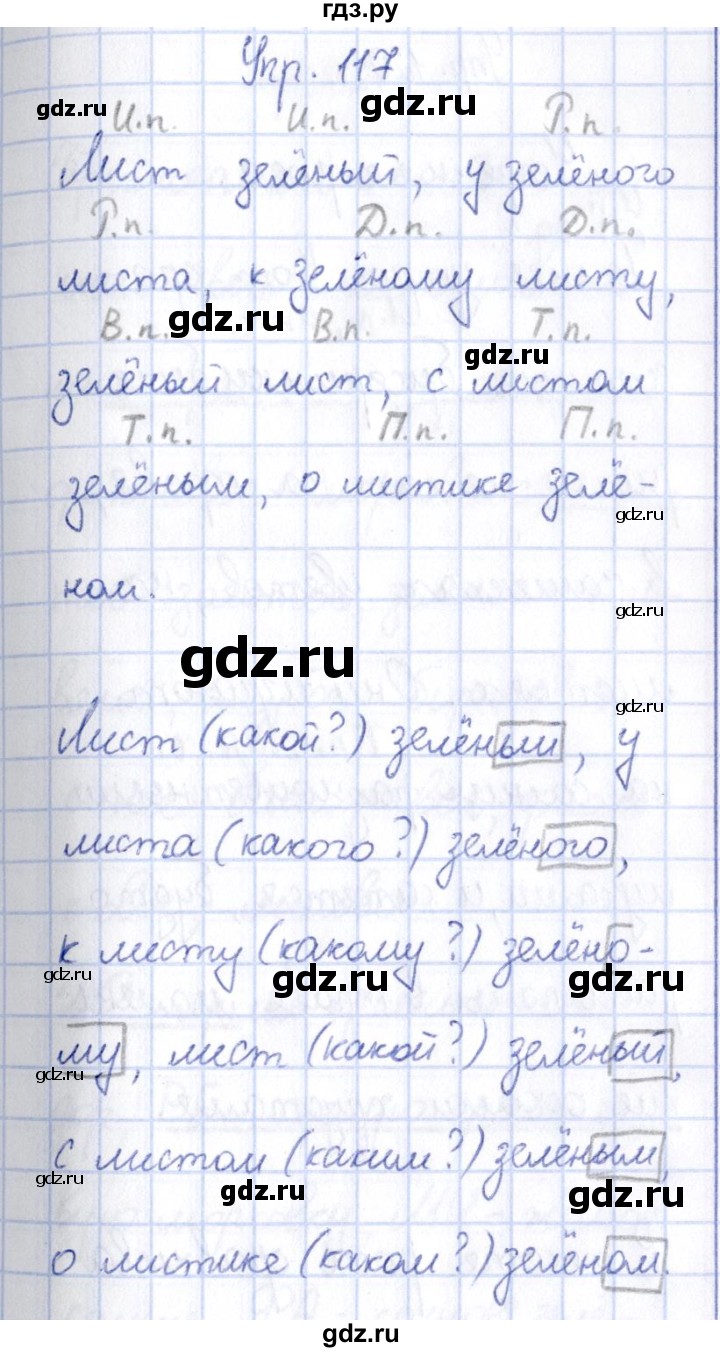 гдз.ру
Упр. 117
gdz.ru gdz.ru gdz.ru
И.п. И.п. Р.п.
Лист зелёный, у зелёного
Р.п. Д.п. Д.п.
листа, к зелёному листу,
gdz.ru
В.п. В.п. Т.п.
gdz.ru
зелёный лист, с листом
Т.п. П.п. П.п.
зелёным, о листике зелё-
gdz.ru
ном.
gdz.ru
gdz.ru
gdz.ru
Лист (какой?) зелёный, у
листа (какого?) зелёного,
к листу (какому?) зелёно-
gdz.ru gdz.ru gdz.ru
му, лист (какой?) зелёный,
gdz.ru
с листом (каким?) зелёным,
gdz.ru gdz.ru gdz.ru
о листике (каком?) зелёном.
gdz.ru